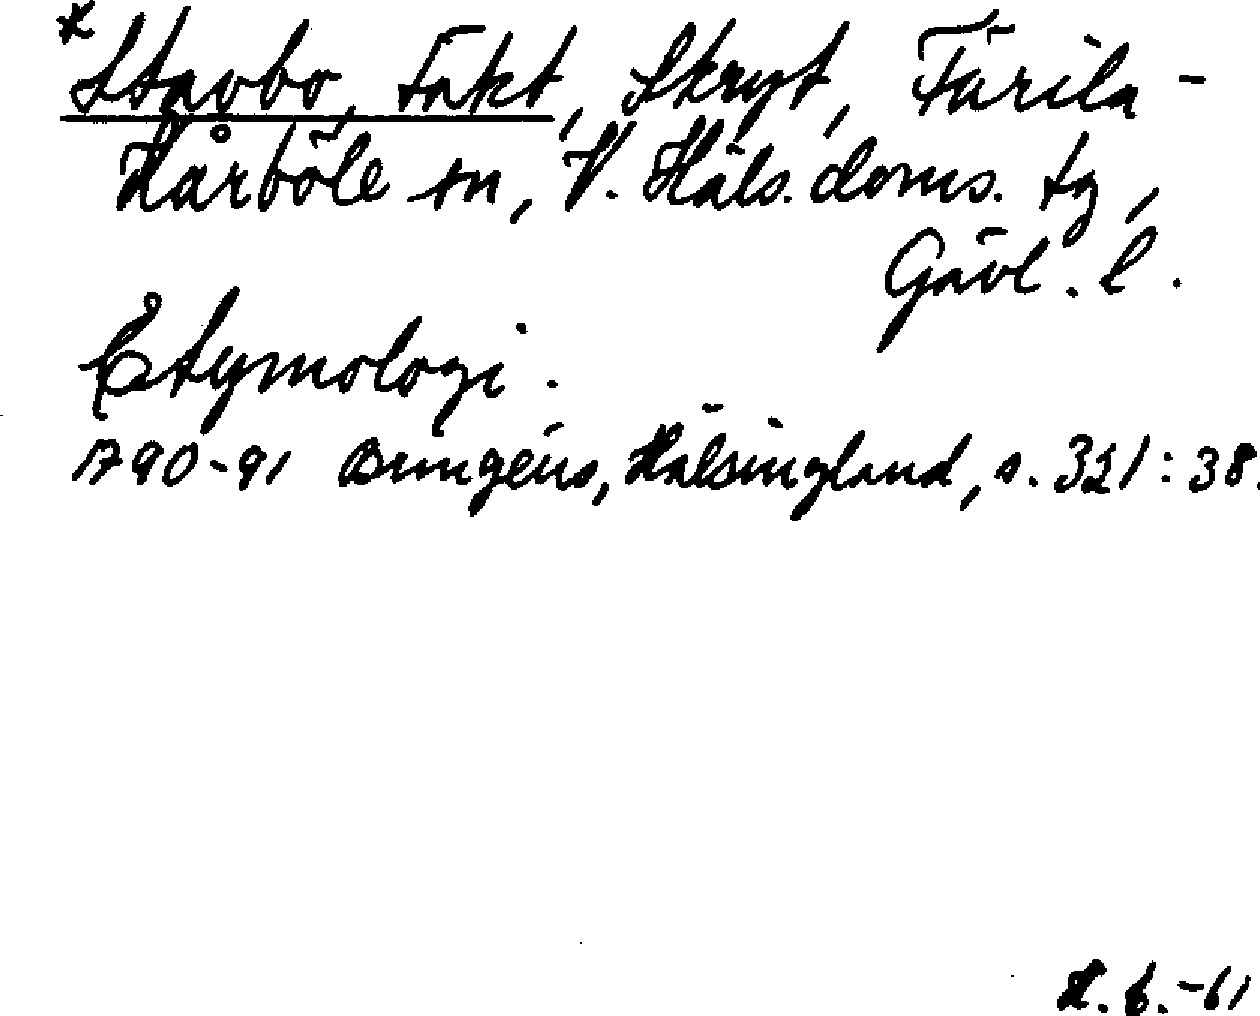 *Stavbo, Täkt, Skryt, Färila-
Kårböle sn, V. Häls. doms. tg,
Gävl. l.
Etymologi.
1790-91 Brungéus, Hälsingland, s. 321:38.
H. b. -61